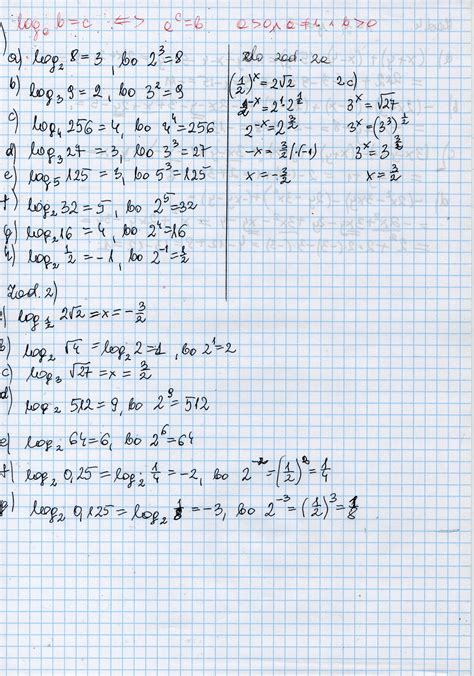 log_a b = c ⟺ a^c = b   a>0, a≠1 i b>0
a) log₂ 8 = 3, bo 2³ = 8
b) log₃ 9 = 2, bo 3² = 9
c) log₄ 256 = 4, bo 4⁴ = 256
d) log₃ 27 = 3, bo 3³ = 27
e) log₅ 125 = 3, bo 5³ = 125
f) log₂ 32 = 5, bo 2⁵ = 32
g) log₂ 16 = 4, bo 2⁴ = 16
h) log₂ 1/2 = -1, bo 2⁻¹ = 1/2
do zad. 2a
(1/2)^x = 2√2
2^(-x) = 2¹·2^(1/2)
2^(-x) = 2^(3/2)
-x = 3/2 /·(-1)
x = -3/2
2c)
3^x = √27
3^x = (3³)^(1/2)
3^x = 3^(3/2)
x = 3/2
Zad. 2)
log_(1/2) 2√2 = x = -3/2
b) log₂ √4 = log₂ 2 = 1, bo 2¹ = 2
c) log₃ √27 = x = 3/2
d) log₂ 512 = 9, bo 2⁹ = 512
e) log₂ 64 = 6, bo 2⁶ = 64
f) log₂ 0,25 = log₂ 1/4 = -2, bo 2⁻² = (1/2)² = 1/4
g) log₂ 0,125 = log₂ 1/8 = -3, bo 2⁻³ = (1/2)³ = 1/8